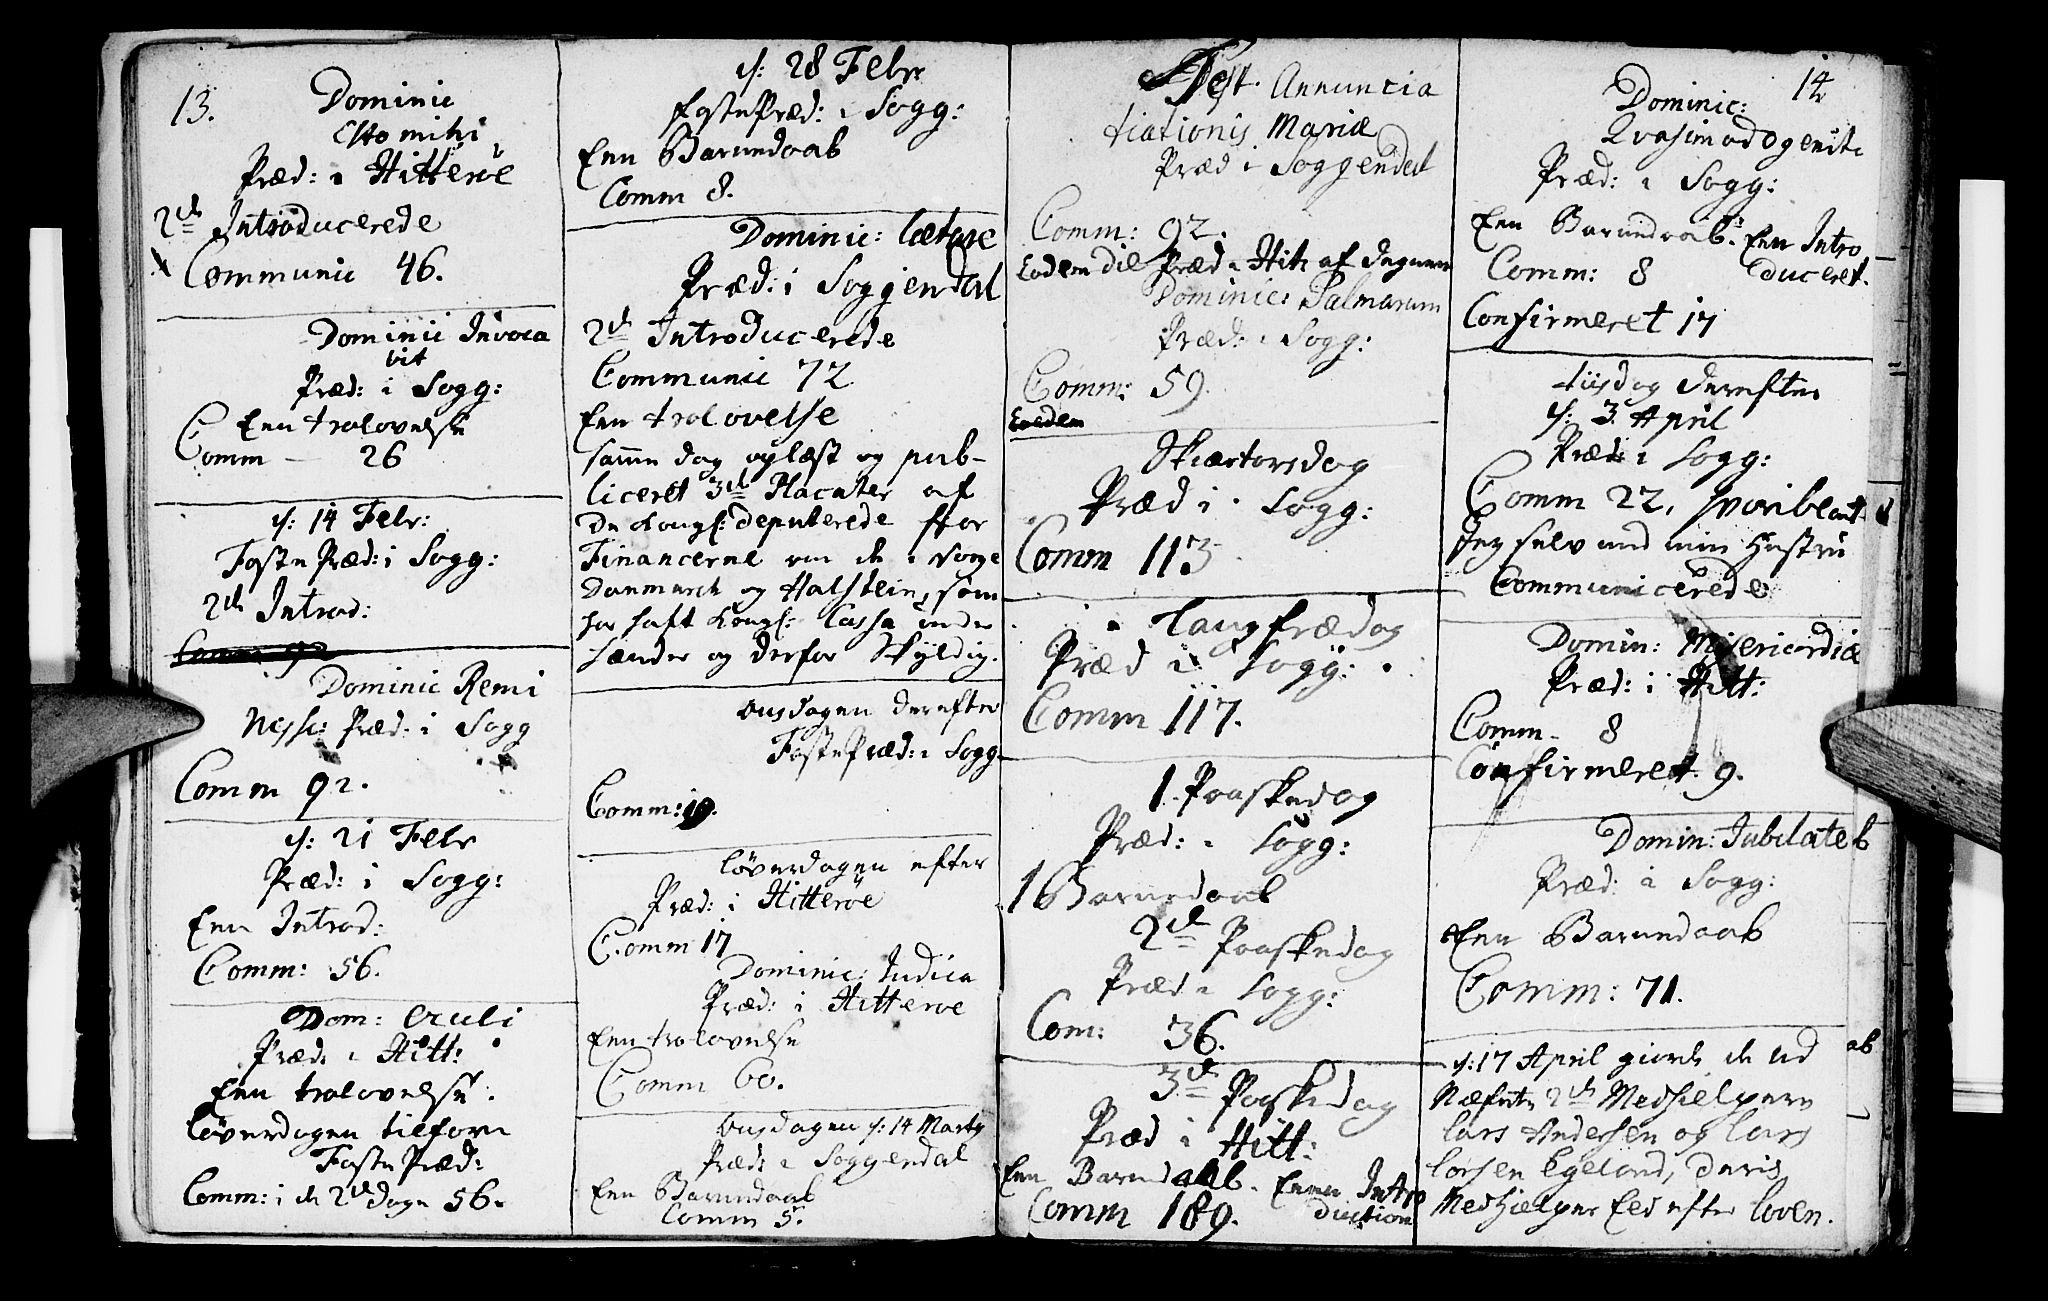 13.
Dominic
Esto mihi
Præd: i Hitterøe
2de Introducerede
Communic 46.
Dominic Invoca
bit
Præd: i Sogg:
Een trolovelse
Comm - 26
d: 14 Febr:
Faste Præd: i Sogg:
2de Introd:
Dominic Remi
nessc: Præd: i Sogg
Comm 92.
d: 21 Febr
Præd: i Sogg:
Een Introd:
Comm: 56.
Dom: Oculi
Præd: i Hitt:
Een trolovelse.
Løverdagen tilforn
Faste Præd:
Comm: i de 2de dage 56.
d: 28 Febr
FastePræd: i Sogg:
Een Barnedaab
Comm 8.
Dominic: Lætare
Præd: i Soggendal
2de Introducerede
Communic 72
Een trolovelse
samme dag oplæst og pub-
liceret 3de Placater af
De Kongl: deputerede for
Financerne om de i Norge
Danmarck og Halstein, som
har haft Kongl: Cassa under
hænder og derfor Skyldig.
Onsdagen derefter
FastePræd: i Sogg
Comm: 19.
Løverdagen efter
Præd: i Hitterøe
Comm 17
Dominic: Judica
Præd: i Hitteroe
Een trolovelse
Comm 60.
Onsdagen d: 14 Marty
Præd: i Soggendal
Een Barnedaab
Comm 5.
Fest. Annuncia
tiationis Mariæ
Præd i Soggendal
Comm: 92.
Eodem die Præd i Hitt af
Dominic: Palmarum
Præd: i Sogg:
Comm: 59.
Eodem
Skiærtorsdag
Præd i Sogg:
Comm 113
Langfrædag
Præd i Sogg:
Comm 117.
1. Paaskedag
Præd: i Sogg:
1 Barnedaab
2de Paaskedag
Præd i Sogg:
Com: 36.
3de Paaskedag
Præd i Hitt:
Een Barnedaab. Een Intro
duction
Comm 189.
14
Dominic:
Qvasimodogenite
Præd: i Sogg:
Een Barnedaab: Een Intro
duceret.
Comm: 8
Confirmeret 17
tiisdag derefter
d: 3 April
Præd: i Sogg:
Comm 22, hvoriblant
Jeg selv med min Hustru
Communicerede
Domin: Misericordiæ
Præd: i Hitt:
Comm- 8
Confirmeret 9.
Domin: Jubilate
Præd: i Sogg:
Een Barnedaab
Comm: 71.
d: 17 April giorde de ud
Næfnte 2de Medhielpere
Lars Andersen og Lars
Larsen Egeland, deris
Medhielper Eed efter Loven.